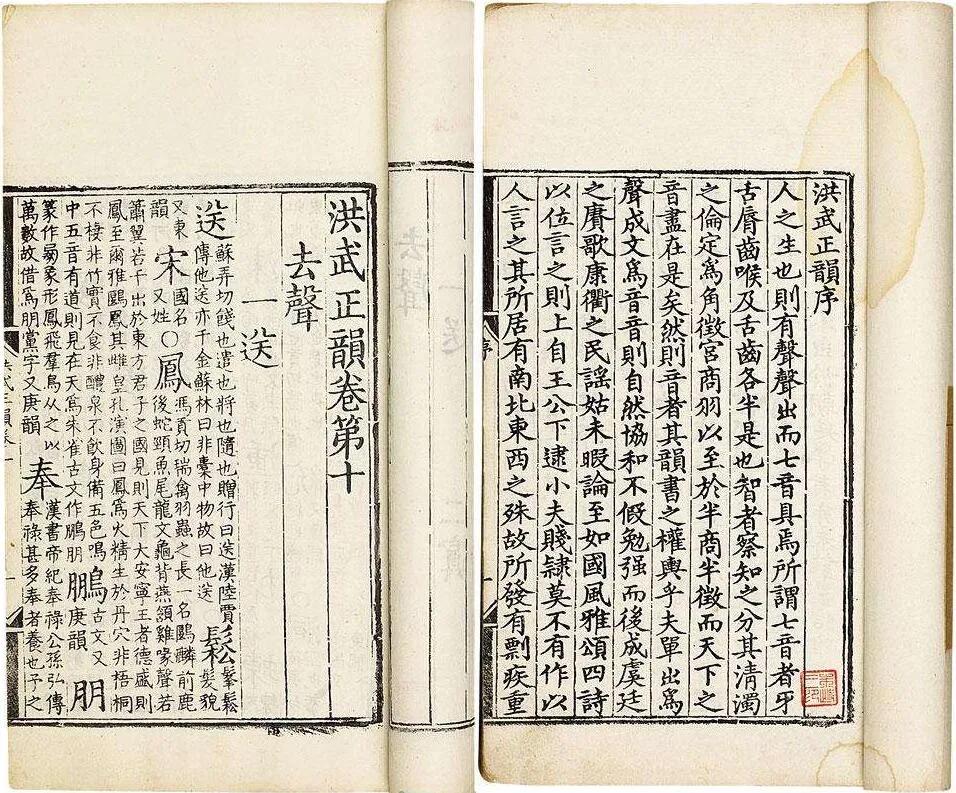 洪武正韻序
人之生也則有聲聲出而七音具焉所謂七音者牙
舌脣齒喉及舌齒各半是也智者察知之分其清濁
之倫定爲角徵宮商羽以至於半商半徵而天下之
音盡在是矣然則音者其韻書之權輿乎夫單出爲
聲成文爲音音則自然協和不假勉强而後成虞廷
之賡歌康衢之民謡姑未暇論至如國風雅頌四詩
以位言之則上自王公下逮小夫賤隸莫不有作以
人言之其所居有南北東西之殊故所發有剽疾重
洪武正韻卷第十
去聲
一送
送蘇弄切餞也遣也將也隨也贈行曰送漢陸賈傳他送亦千金蘇林曰非橐中物故曰他送鬆鬆髮貌
又東韻宋國名又姓〇鳳馮貢切瑞禽羽蟲之長一名鶠麟前鹿後蛇頸魚尾龍文龜背燕頷雞喙聲若
簫翼若干出於東方君子之國見則天下大安寧王者德盛則鳳至爾雅鶠鳳其雌皇孔演圖曰鳳爲火精生於丹穴非梧桐
不棲非竹實不食非醴泉不飲身備五色鳴中五音有道則見在天爲朱雀古文作鵬朋鵬古文又庚韻朋
篆作象形鳳飛羣鳥從之以萬數故借爲朋黨字又庚韻奉漢書帝紀奉祿公孫弘傳奉祿甚多奉者養也子之